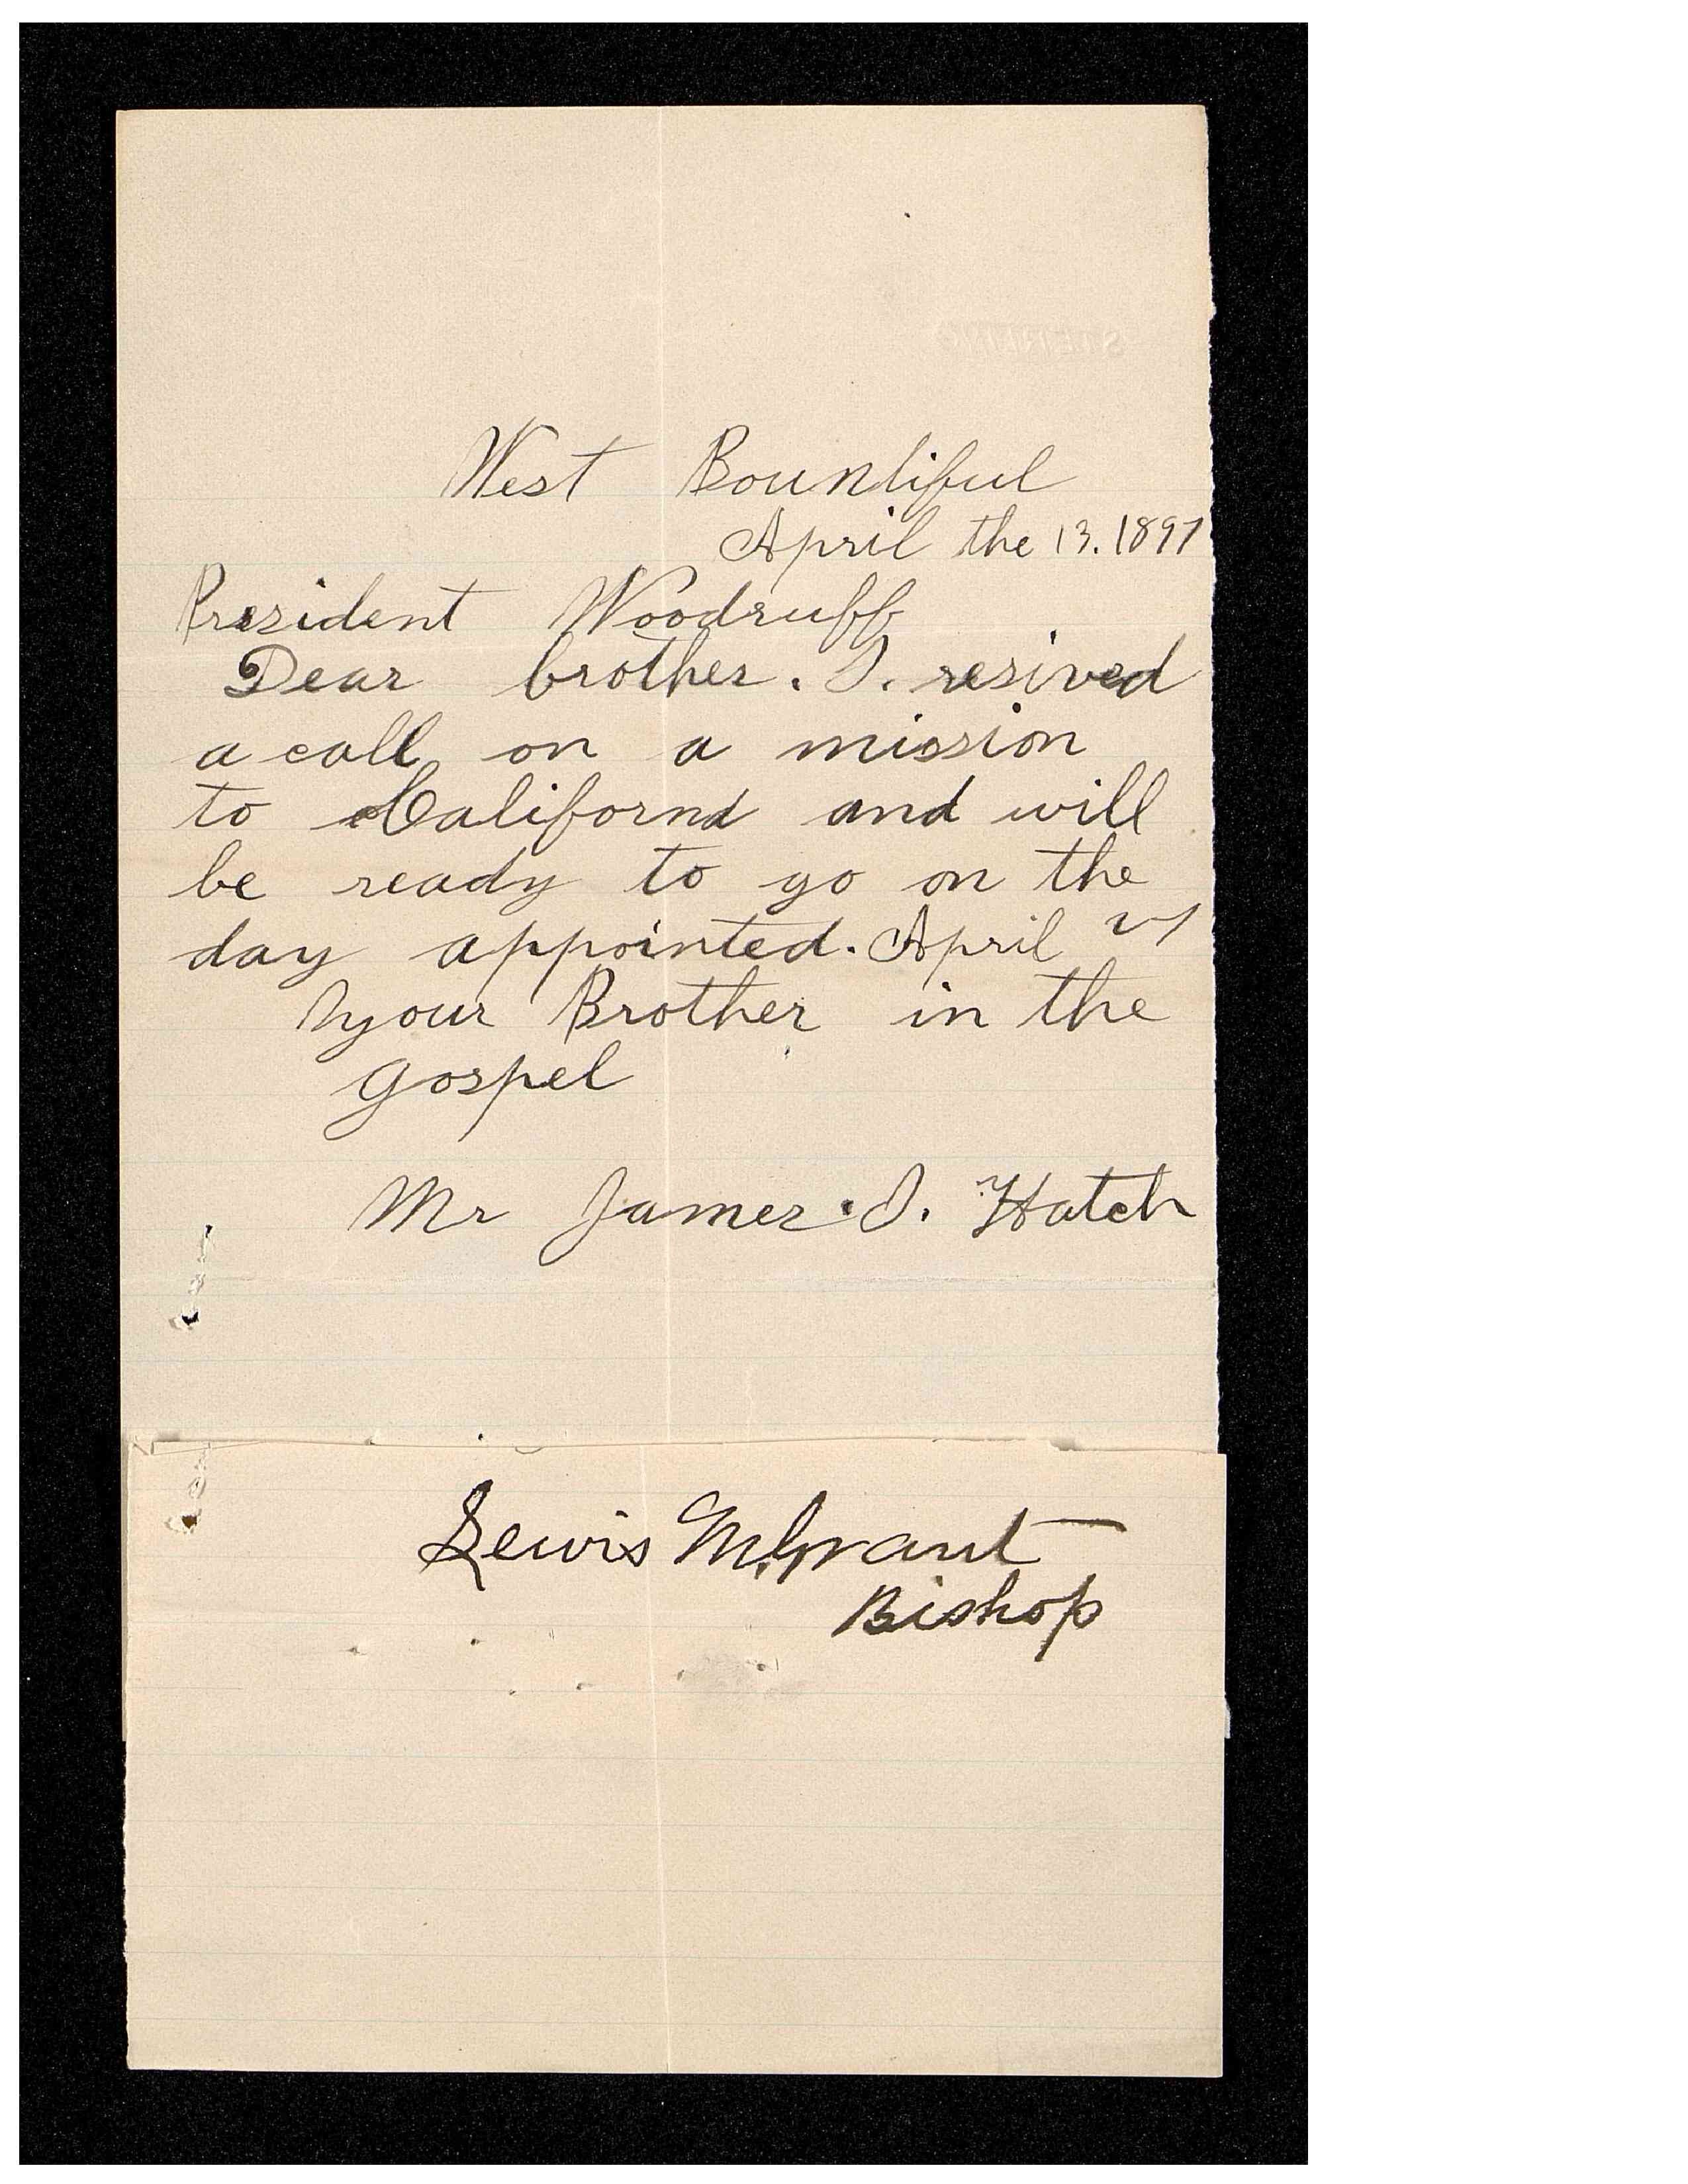 West Bountiful
April the 13. 1897
President Woodruff
Dear brother. I. resived
a call on a mission
to Californa and will
be ready to go on the
day appointed. April
your Brother in the
gospel
Mr James. I. Hatch
Lewis M. Grant
Bishop